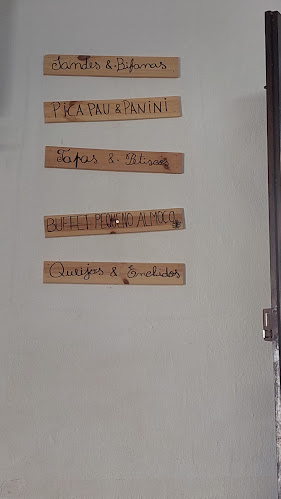 Sandes & Bifanas
PICAPAU & PANINI
Tapas & Petiscos
BUFFET PEQUENO ALMOÇO
Queijos & Enchidos